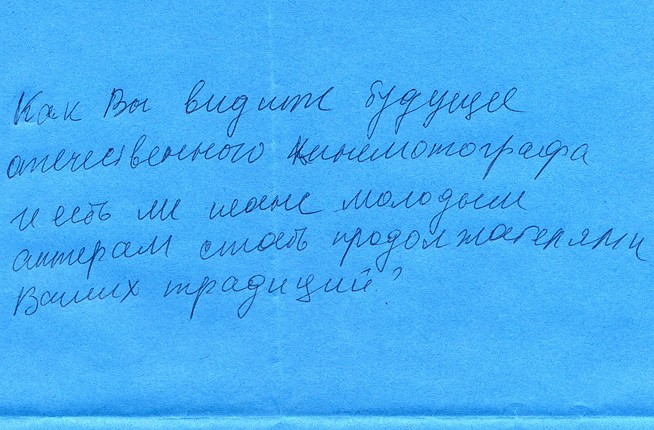 Как Вы видите будущее
отечественного кинемотографа
и есть ли шанс молодым
актерам стать продолжателями
Ваших традиций?